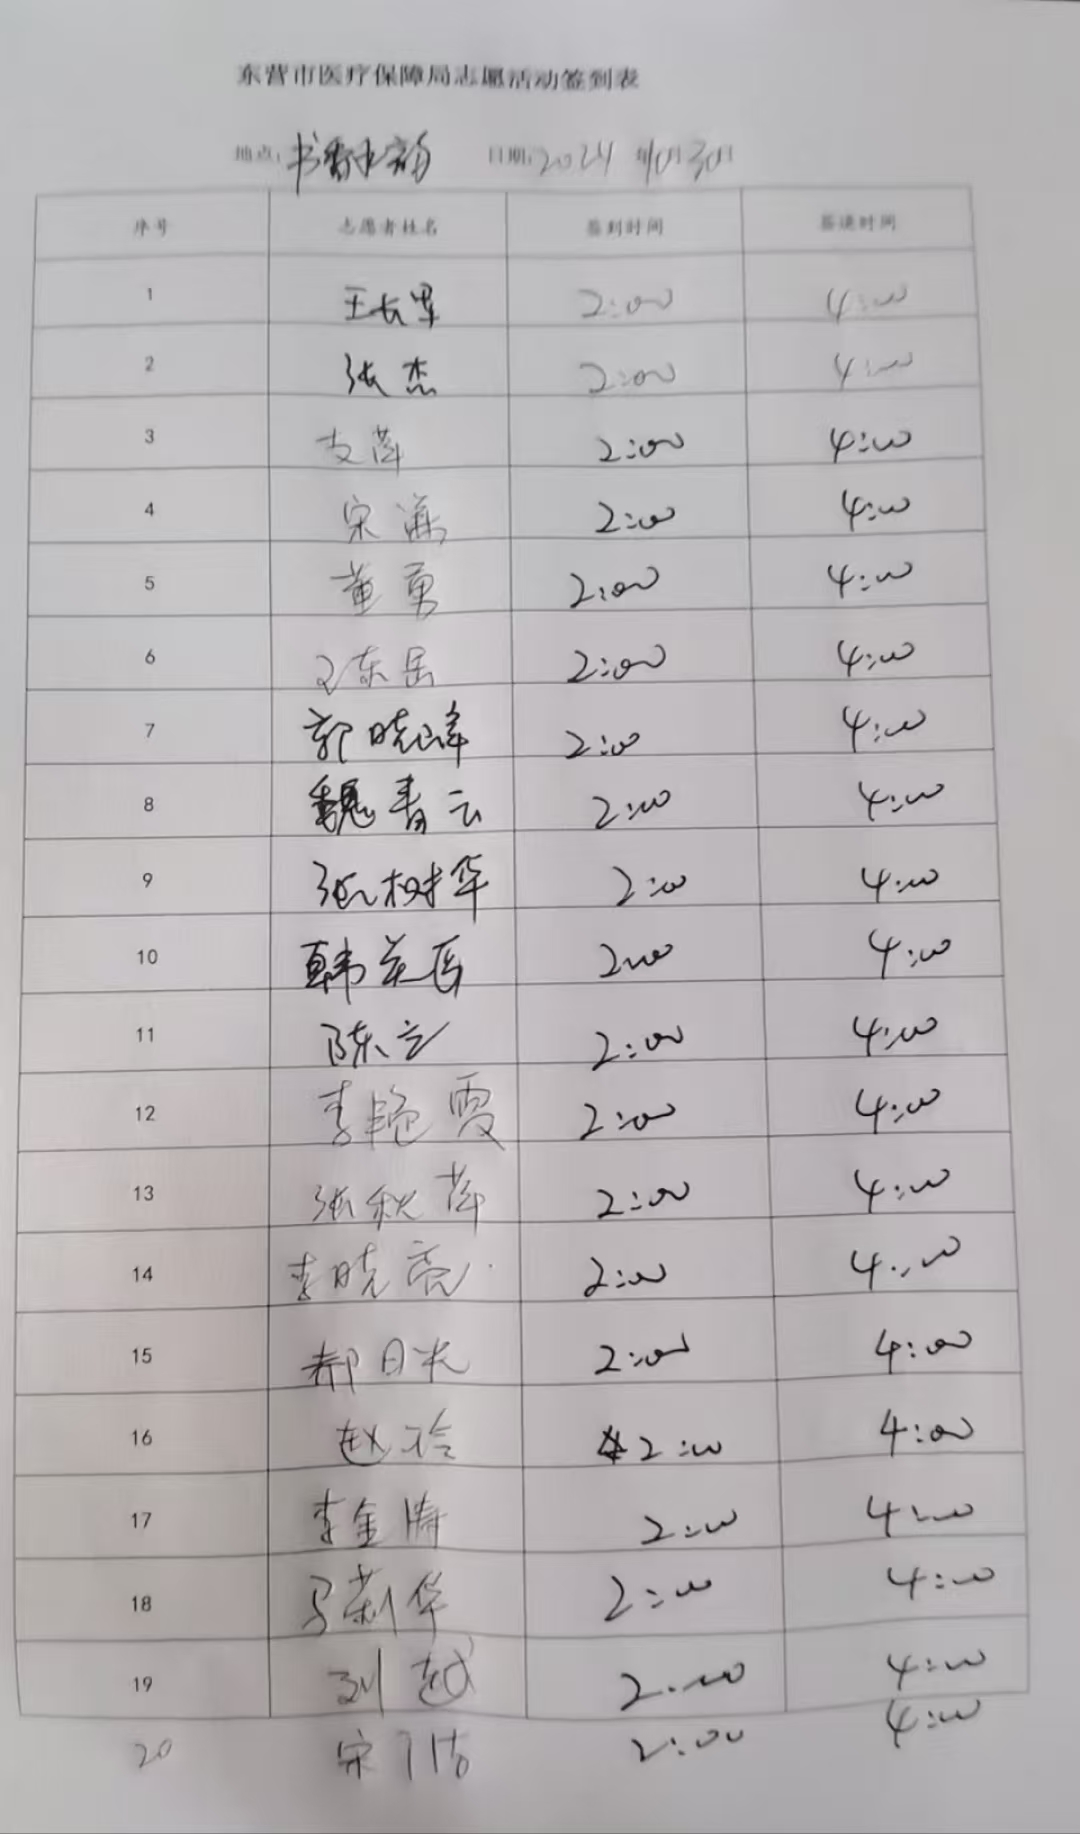 东营市医疗保障局志愿活动签到表
地点: 书香 日期: 2024 年10月30日
序号 志愿者姓名 签到时间 签退时间
1 王长军 2:00 4:00
2 张杰 2:00 4:00
3 支萍 2:00 4:00
4 宋 2:00 4:00
5 董勇 2:00 4:00
6 东岳 2:00 4:00
7 郭晓峰 2:00 4:00
8 魏春云 2:00 4:00
9 张树华 2:00 4:00
10 韩英 2:00 4:00
11 陈 2:00 4:00
12 李艳霞 2:00 4:00
13 张秋萍 2:00 4:00
14 李晓亮 2:00 4:00
15 郝日光 2:00 4:00
16 赵 2:00 4:00
17 李金涛 2:00 4:00
18 马莉华 2:00 4:00
19 刘越 2:00 4:00
20 宋 2:00 4:00